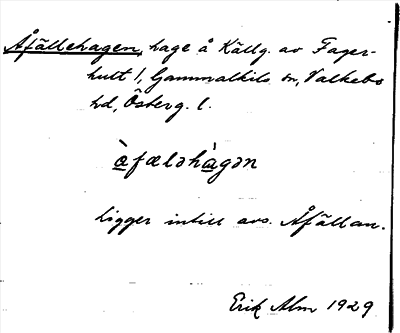 Åfällehagen, hage å Källg. av Fager-
hult 1, Gammalkils sn, Valkebo
hd, Österg. l.
àfæləhàgən
Ligger intill avs. Åfällan.
Erik Alm 1929